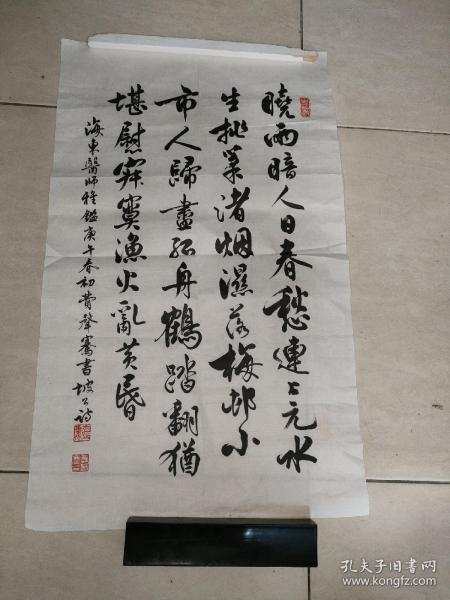 曉雨暗人日春愁連上元水
生挑菜渚烟濕落梅邨小
市人歸盡孤舟鶴踏翻猶
堪慰寂寞漁火亂黄昏
海東醫師雅鑑庚午春初費聲騫書坡公詩
孔夫子旧书网
www.kongfz.com